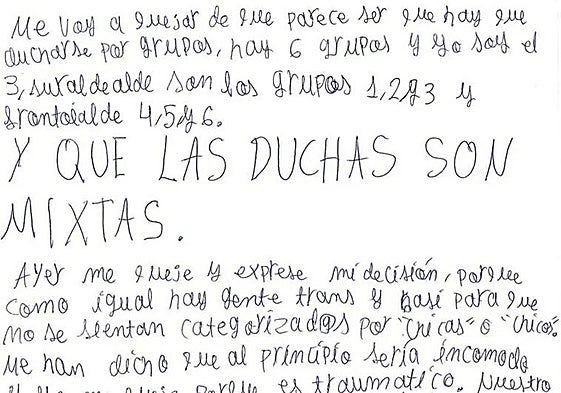 Me voy a quejar de que parece ser que hay que
ducharse por grupos, hay 6 grupos y yo soy el
3, sukaldealde son los grupos 1,2y3 y
frontoialde 4,5y6.
Y QUE LAS DUCHAS SON
MIXTAS.
Ayer me queje y exprese mi decisión, porque
como igual hay gente trans y paso para que
no se sientan categorizad@s por "chicas" o "chicos".
Me han dicho que al principio sería incomodo
porque es traumatico. Nuestro